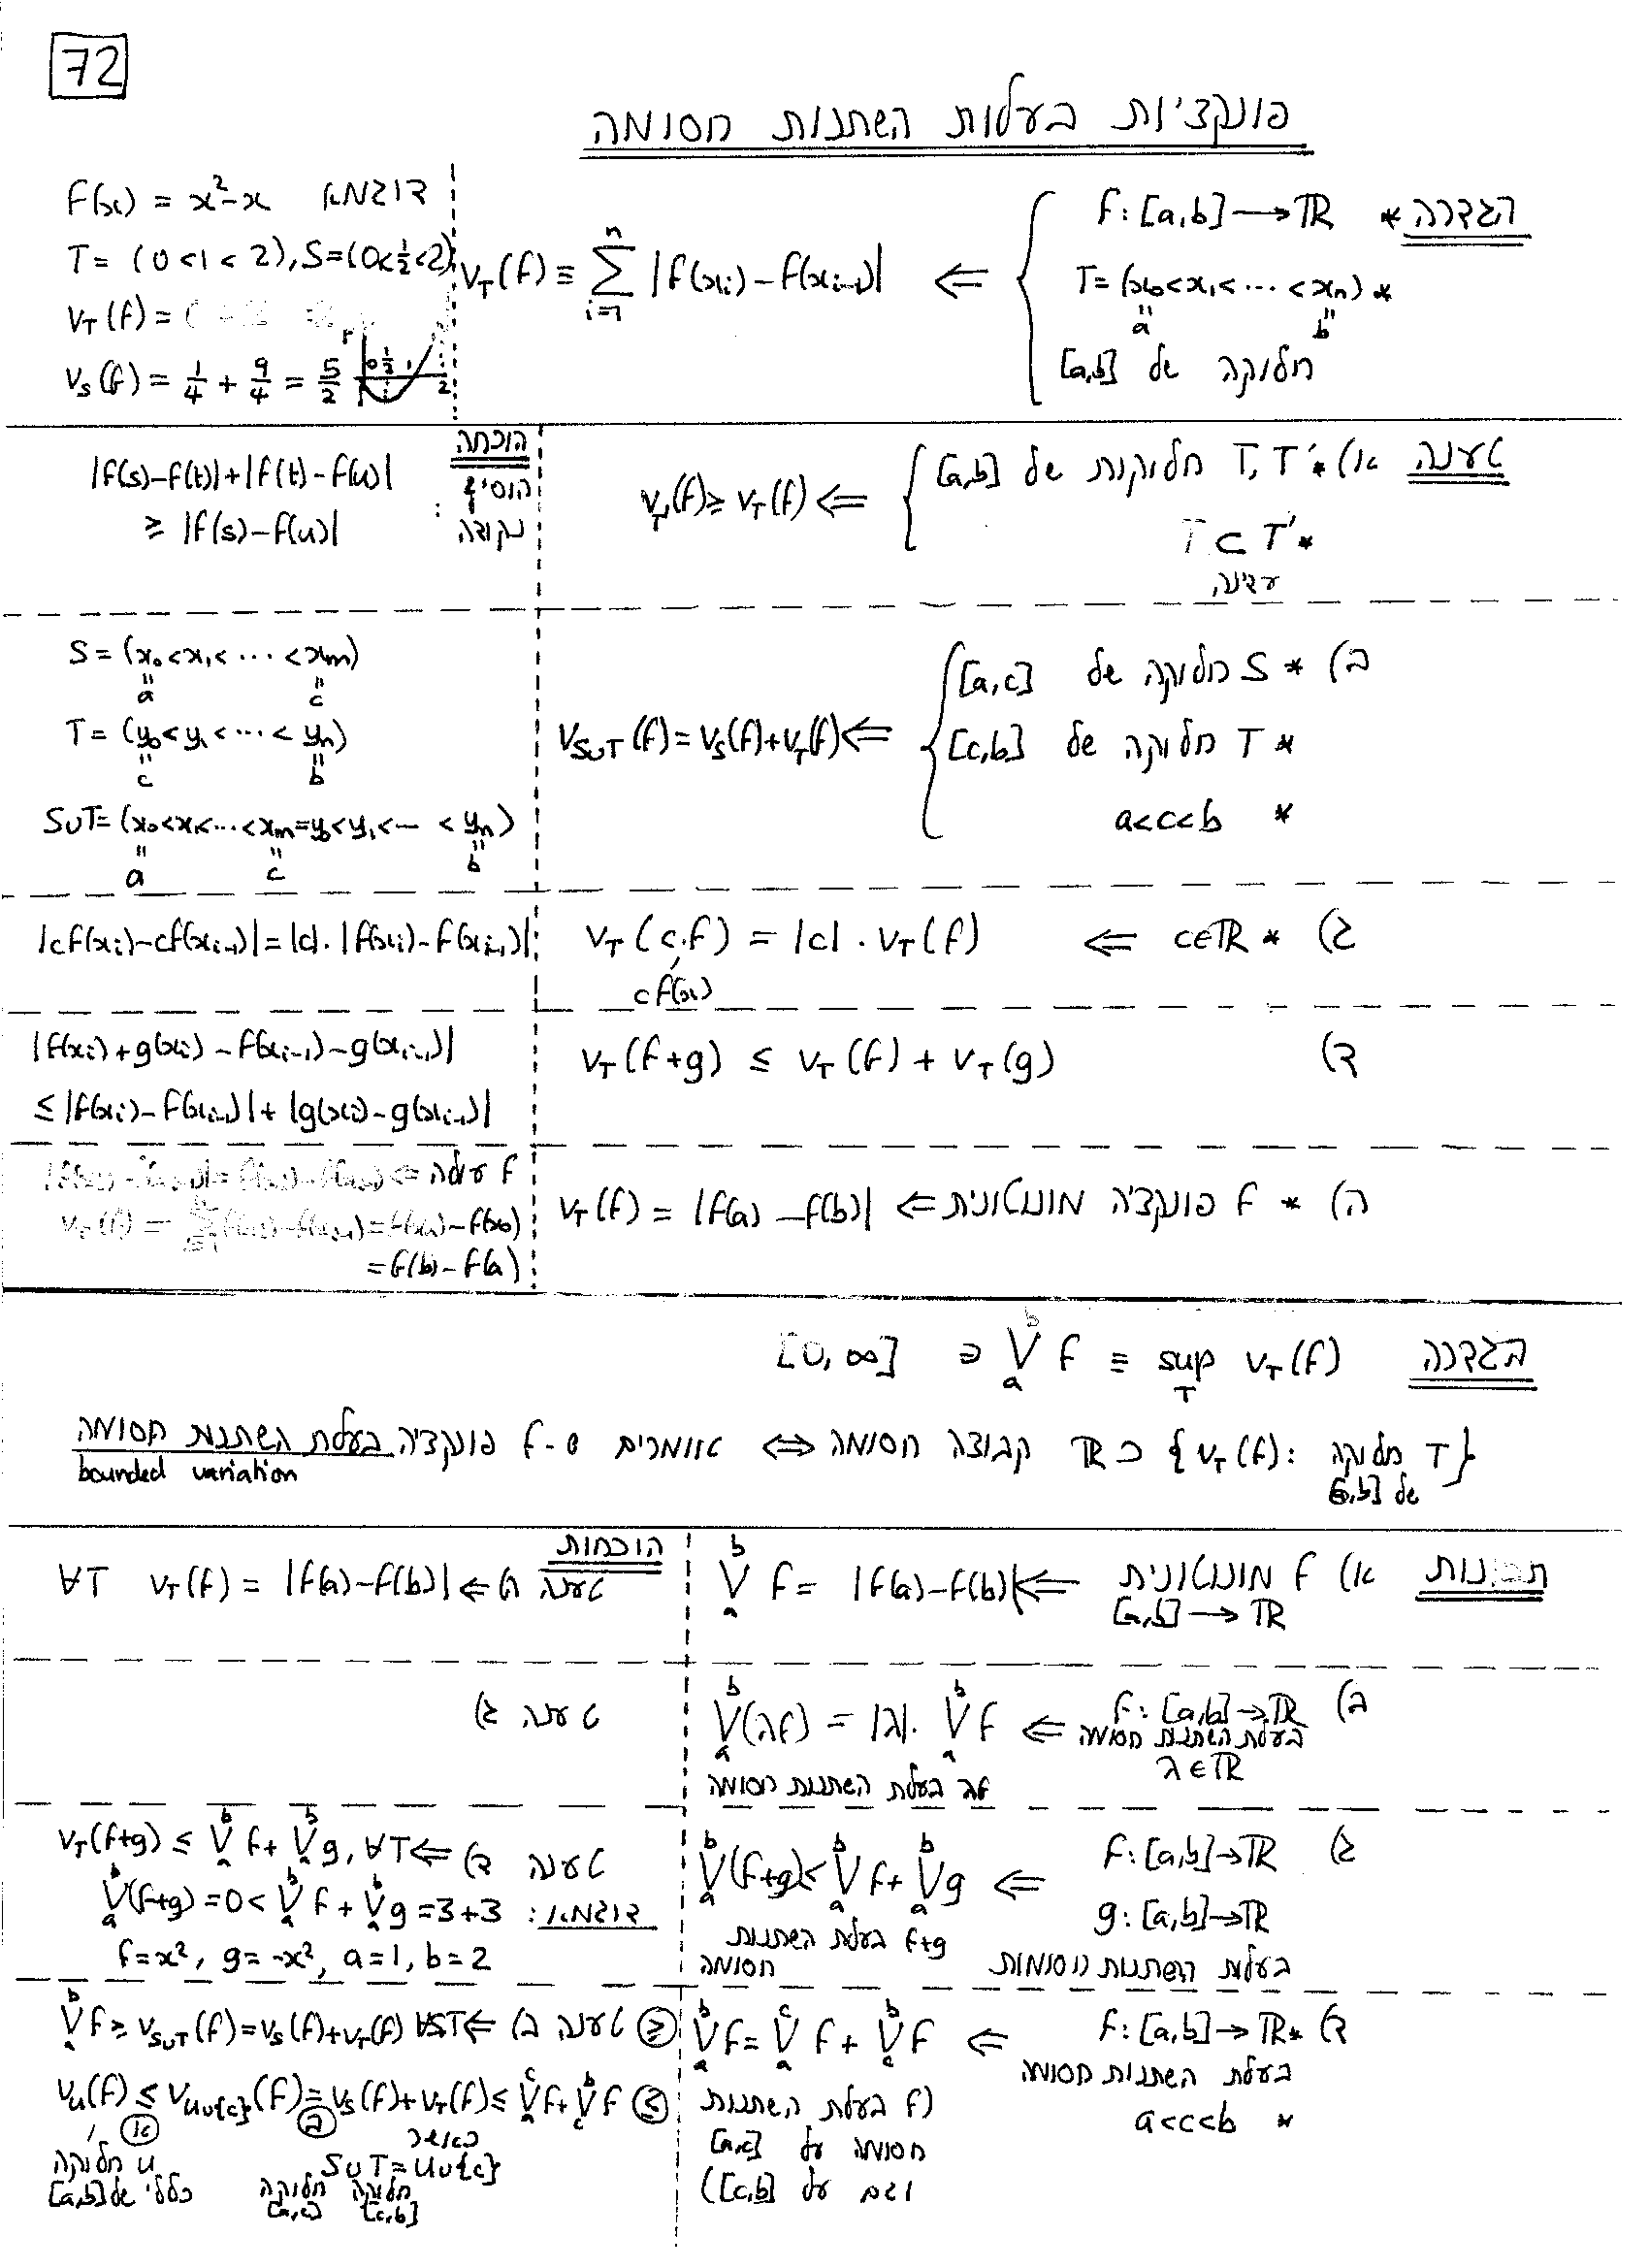 72
פונקציות בעלות השתנות חסומה
הגדרה * f: [a,b] → ℝ
* T = (x₀ < x₁ < ⋯ < xₙ)
a = x₀, b = xₙ
חלוקה של [a,b]
⇐ v_T(f) ≡ Σ_{i=1}^{n} |f(xᵢ) − f(xᵢ₋₁)|
דוגמא f(x) = x² − x
T = (0 < 1 < 2), S = (0 < ½ < 2)
v_T(f) =
v_S(f) = 1/4 + 9/4 = 5/2
0 ½ 1 2
טענה א) * T, T′ חלוקות של [a,b]
* T ⊂ T′
עדינה
⇐ v_T′(f) ≥ v_T(f)
הוכחה
הוסיף נקודה:
|f(s) − f(t)| + |f(t) − f(u)|
≥ |f(s) − f(u)|
ב) * S חלוקה של [a,c]
* T חלוקה של [c,b]
* a < c < b
⇐ v_{S∪T}(f) = v_S(f) + v_T(f)
S = (x₀ < x₁ < ⋯ < xₘ)
a c
T = (y₀ < y₁ < ⋯ < yₙ)
c b
S∪T = (x₀ < x₁ < ⋯ < xₘ = y₀ < y₁ < ⋯ < yₙ)
a c b
ג) * c∈ℝ ⇐ v_T(c·f) = |c| · v_T(f)
cf(x)
|cf(xᵢ) − cf(xᵢ₋₁)| = |c| · |f(xᵢ) − f(xᵢ₋₁)|
ד) v_T(f+g) ≤ v_T(f) + v_T(g)
|f(xᵢ) + g(xᵢ) − f(xᵢ₋₁) − g(xᵢ₋₁)|
≤ |f(xᵢ) − f(xᵢ₋₁)| + |g(xᵢ) − g(xᵢ₋₁)|
ה) * f פונקציה מונוטונית ⇐ v_T(f) = |f(a) − f(b)|
f עולה ⇐
v_T(f) = − f(x₀)
= f(b) − f(a)
הגדרה V_a^b f ≡ sup_T v_T(f) ∋ [0, ∞]
{v_T(f): T חלוקה של [a,b]} ⊂ ℝ קבוצה חסומה ⇔ אומרים ש-f פונקציה בעלת השתנות חסומה
bounded variation
תכונות א) f מונוטונית
[a,b] → ℝ
⇐ V_a^b f = |f(a) − f(b)|
הוכחות
טענה ה) ⇐ v_T(f) = |f(a) − f(b)| ∀T
ב) f: [a,b] → ℝ
בעלת השתנות חסומה
λ ∈ ℝ
⇐ V_a^b(λf) = |λ| · V_a^b f
λf בעלת השתנות חסומה
טענה ג)
ג) f: [a,b] → ℝ
g: [a,b] → ℝ
בעלות השתנות חסומות
⇐ V_a^b(f+g) ≤ V_a^b f + V_a^b g
f+g בעלת השתנות חסומה
טענה ד) ⇐ v_T(f+g) ≤ V_a^b f + V_a^b g, ∀T
דוגמא: V_a^b(f+g) = 0 < V_a^b f + V_a^b g = 3+3
f = x², g = −x², a = 1, b = 2
ד) * f: [a,b] → ℝ
בעלת השתנות חסומה
* a < c < b
⇐ V_a^b f = V_a^c f + V_c^b f
(f בעלת השתנות
חסומה על [a,c]
וגם על [c,b])
≥ טענה ב) ⇐ V_a^b f ≥ v_{S∪T}(f) = v_S(f) + v_T(f) ∀S,T
≤ v_U(f) ≤ v_{U∪{c}}(f) = v_S(f) + v_T(f) ≤ V_a^c f + V_c^b f
א ב
U חלוקה כללי של [a,b]
כאשר S∪T = U∪{c}
חלוקה [a,c] חלוקה [c,b]